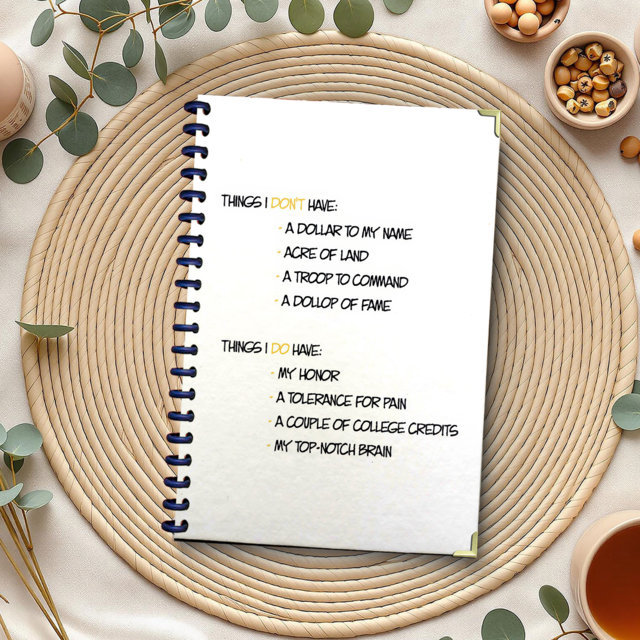 THINGS I DON'T HAVE:
- A DOLLAR TO MY NAME
- ACRE OF LAND
- A TROOP TO COMMAND
- A DOLLOP OF FAME
THINGS I DO HAVE:
- MY HONOR
- A TOLERANCE FOR PAIN
- A COUPLE OF COLLEGE CREDITS
- MY TOP-NOTCH BRAIN